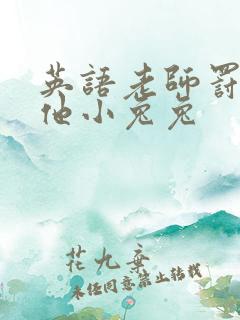 英語老師罰
他小兔兔
花九棄
未經同意禁止轉載